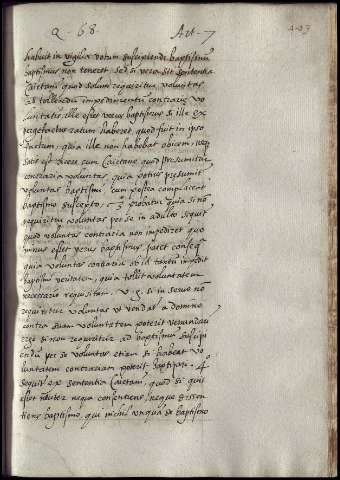 Q. 68. Art. 7
habuit in vigilia votum suscipiendi baptismum
baptismus non teneret sed si vera sit sententia
Caietani quod solum requiritur voluntas
ad tollendum impedimentum contrariæ vo
luntatis, ille esset verus baptismus si ille ex
pergefactus ratum haberet quod fuit in ipso
factum, quia ille non habebat obicem, nec
satis est dicere cum Caietano quod præsumitur
contraria voluntas, quia potius præsumit
voluntas baptismi cum postea complaceat
baptismo suscepto, probatur quia si nō
requiritur voluntas per se in adulto sequit
quod voluntas contraria non impediret quo
minus esset verus baptismus patet conseq
quia voluntas contraria ob id tantum impedit
baptismi veritatem, quia tollit voluntatem
necessario requisitam. v. g. si in servo nō
requiritur voluntas ut vendat a domino
contra suam voluntatem poterit venundari
ergo si non requiritur ad baptismum suscipi
endum per se voluntas etiam si habeat vo
luntatem contrariam poterit baptizari. 4º
sequit ex sententia Caietani, quod si quis
esset adultus neque consentiens neque dissen
tiens baptismo, qui nihil unquam de baptismo